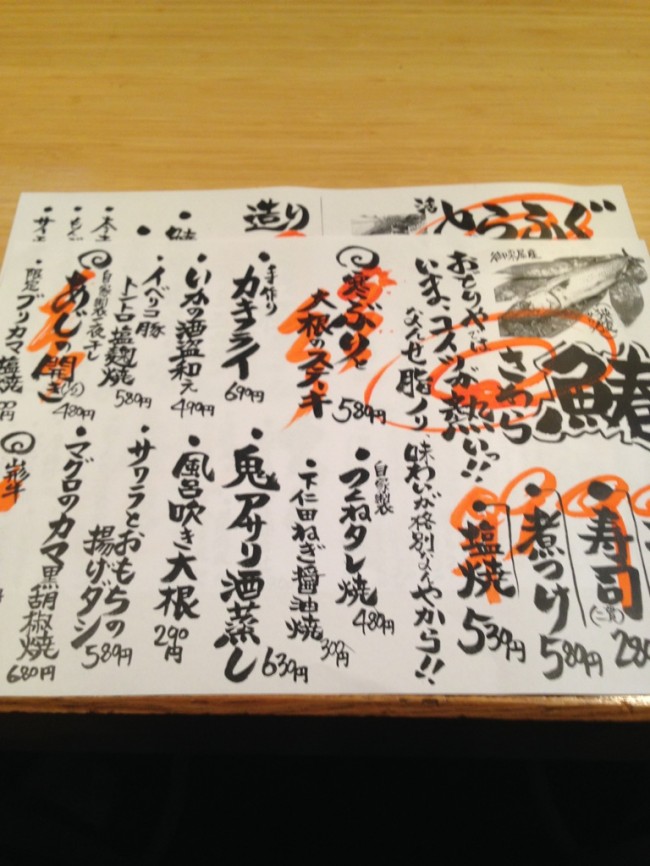 とらふぐ
造り
鮭
おどりやでは
いま、コイツが熱いっ!!
なんせ脂ノリ、味わいが格別なんやから!!
さわら
鰆
寿司
(二貫)
280
煮つけ
580円
塩焼
530円
寒ぶりと
大根のステーキ
580円
自家製
つくねタレ焼
480円
下仁田ねぎ醤油焼
手作り
カキフライ
690円
鬼アサリ酒蒸し
630円
いかの酒盗和え
490円
風呂吹き大根
290円
イベリコ豚
トントロ塩麹焼
580円
サワラとおもちの
揚げダシ
580円
自家製一夜干し
あじの開き
480円
マグロのカマ黒胡椒焼
680円
限定ブリカマ塩焼
山形牛